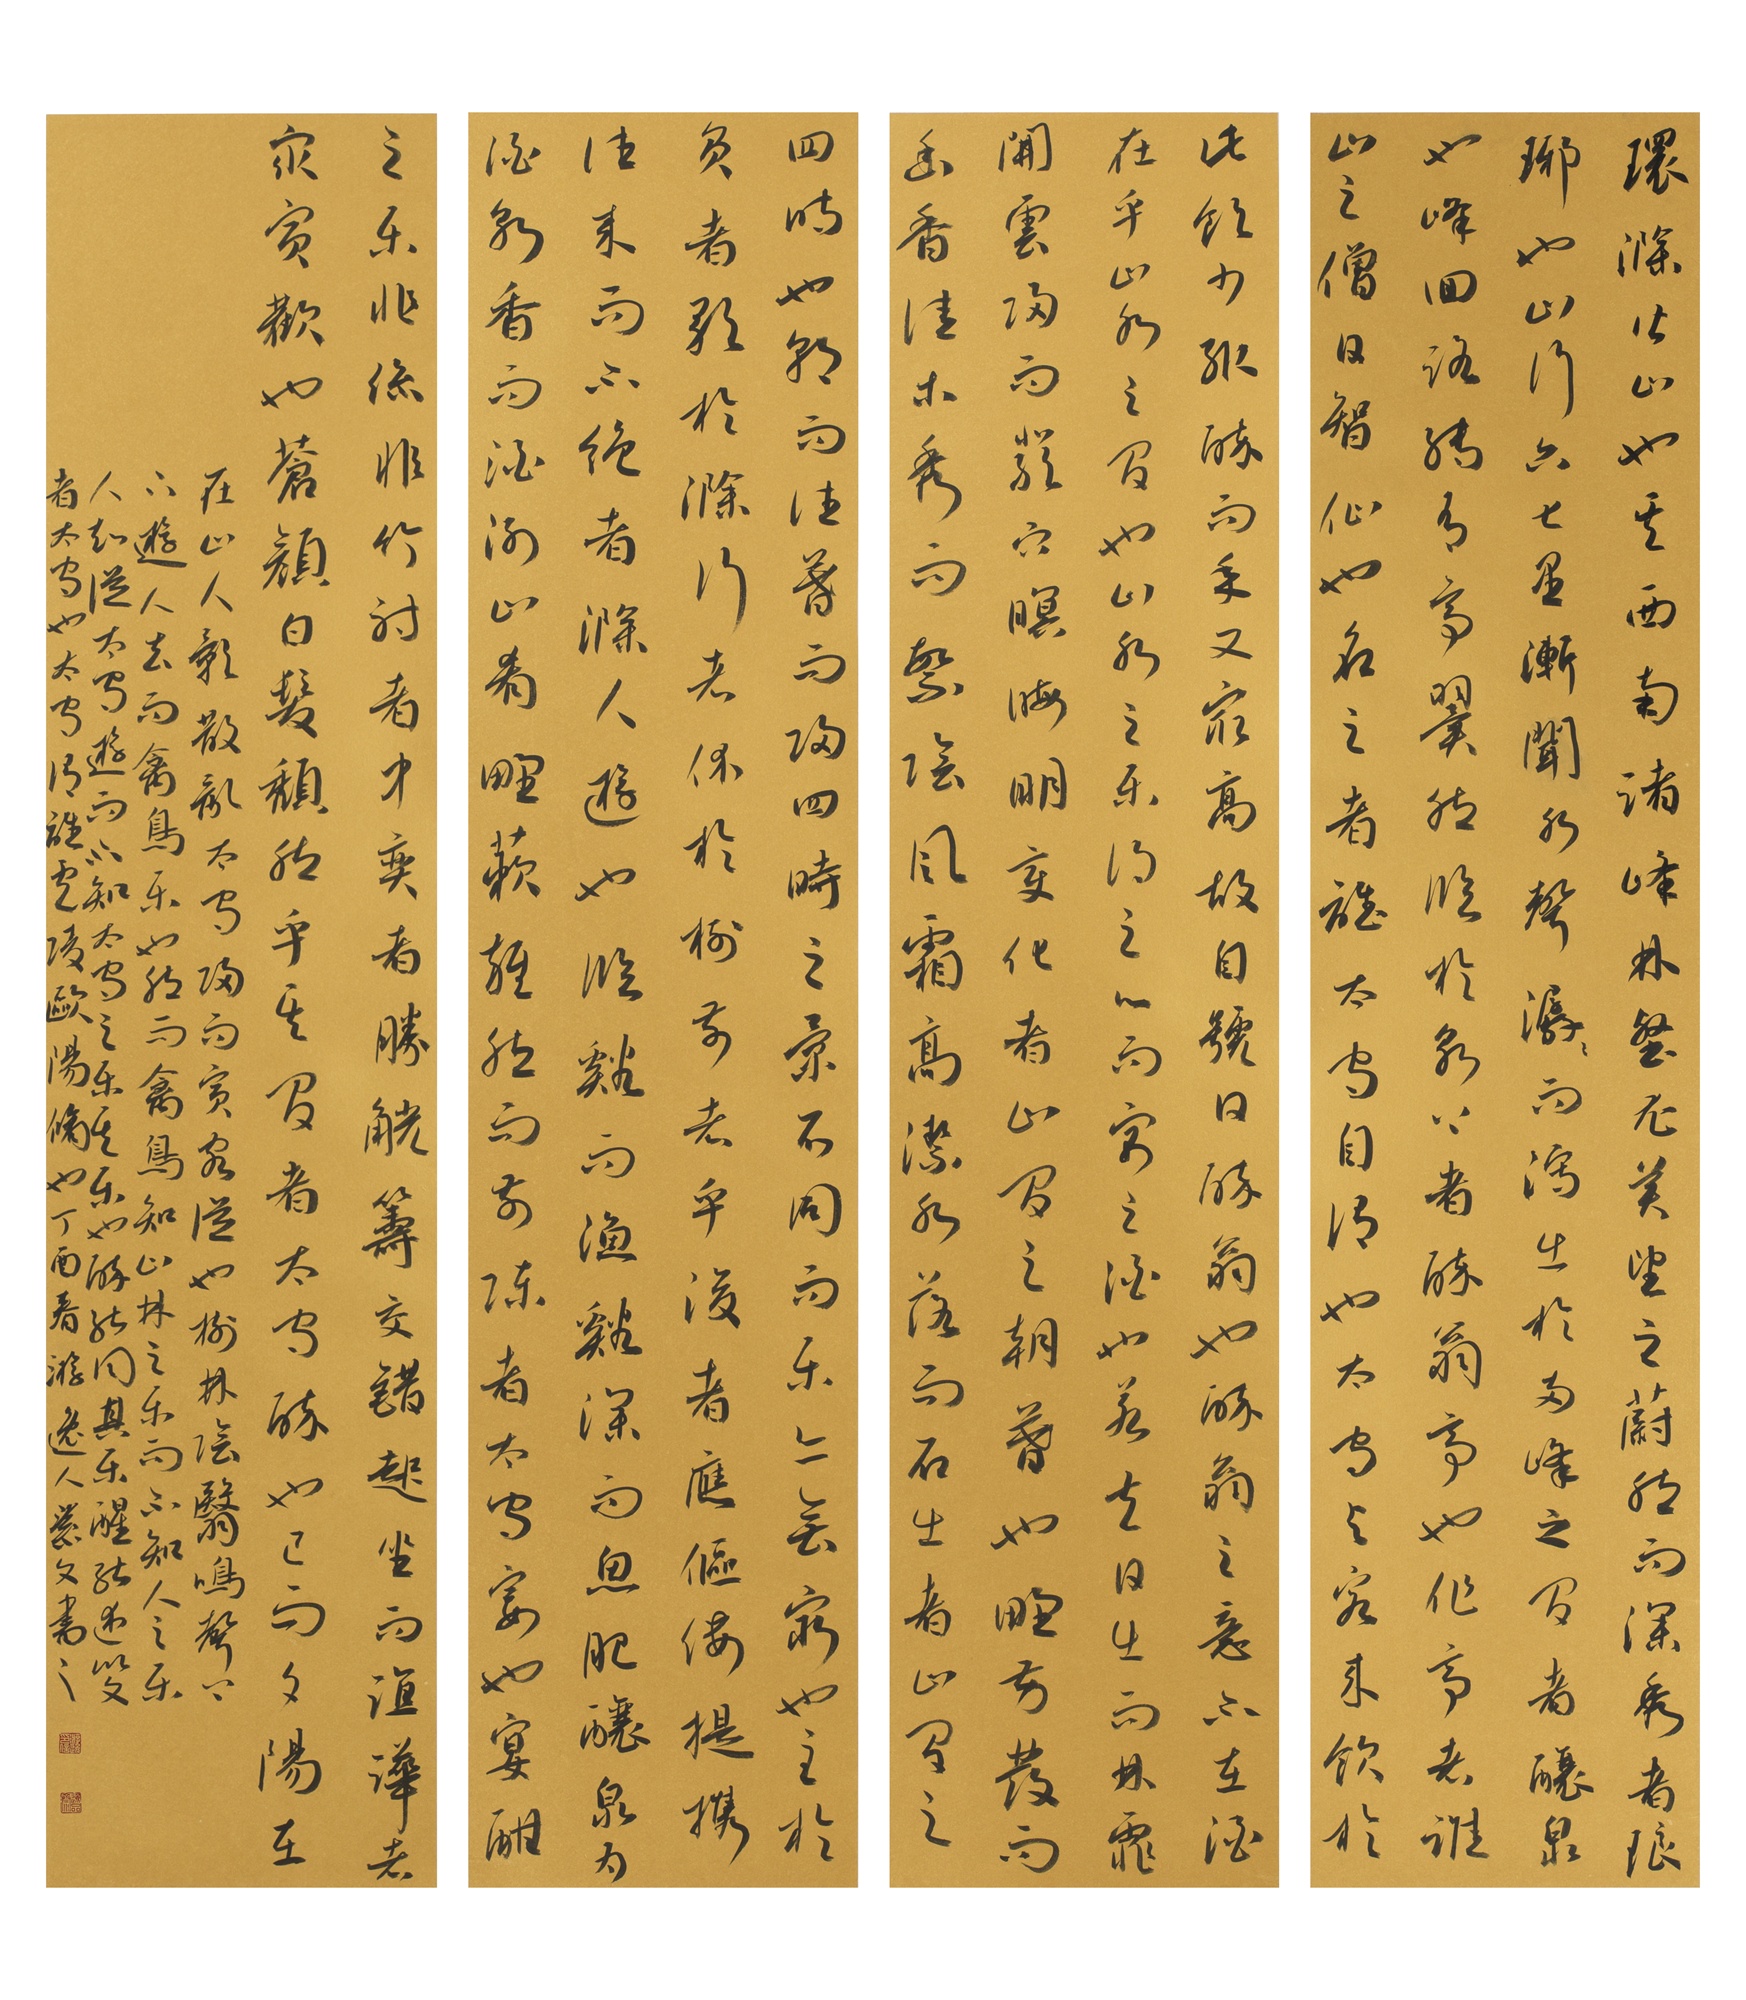 環滁皆山也其西南諸峰林壑尤美望之蔚然而深秀者琅
琊也山行六七里漸聞水聲潺〻而瀉出於兩峰之間者釀泉
也峰回路轉有亭翼然臨於泉上者醉翁亭也作亭者誰
山之僧曰智仙也名之者誰太守自謂也太守與客來飲於
此飲少輒醉而年又最高故自號曰醉翁也醉翁之意不在酒
在乎山水之間也山水之樂得之心而寓之酒也若夫日出而林霏
開雲歸而巖穴暝晦明變化者山間之朝暮也野芳發而
幽香佳木秀而繁陰風霜高潔水落而石出者山間之
四時也朝而往暮而歸四時之景不同而樂亦無窮也至於
負者歌於滁行者休於樹前者乎後者應傴僂提攜
往來而不絕者滁人遊也臨谿而漁谿深而魚肥釀泉為
酒泉香而酒洌山肴野蔌雜然而前陳者太守宴也宴酣
之樂非絲非竹射者中奕者勝觥籌交錯起坐而諠譁者
眾賓歡也蒼顏白髮頹然乎其間者太守醉也已而夕陽在
在山人影散亂太守歸而賓客從也樹林陰翳鳴聲上
下遊人去而禽鳥樂也然而禽鳥知山林之樂而不知人之樂
人知從太守遊而不知太守之樂其樂也醉能同其樂醒能述以文
者太守也太守謂誰廬陵歐陽脩也丁酉春游逸人文書之